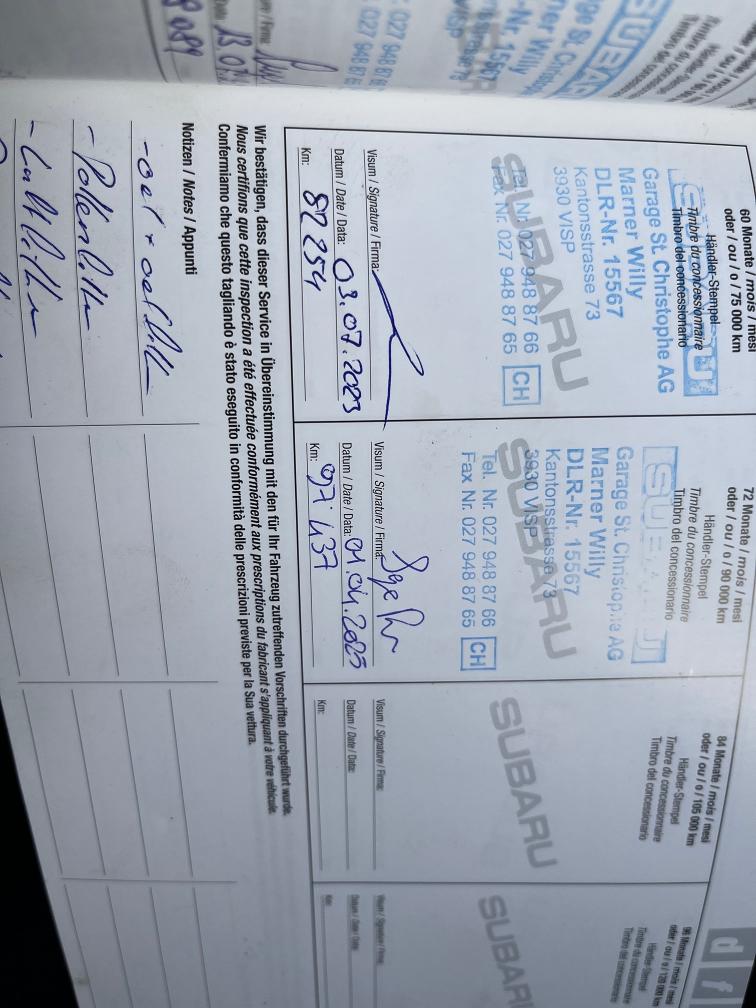 60 Monate / mois / mesi
oder / ou / o / 75 000 km
Händler-Stempel
Timbre du concessionnaire
Timbro del concessionario
Garage St. Christophe AG
Marner Willy
DLR-Nr. 15567
Kantonsstrasse 73
3930 VISP
SUBARU
Tel. Nr. 027 948 87 66
Fax Nr. 027 948 87 65
CH
Visum / Signature / Firma:
Datum / Date / Data: 03.07.2023
Km: 82254
72 Monate / mois / mesi
oder / ou / o / 90 000 km
Händler-Stempel
Timbre du concessionnaire
Timbro del concessionario
SUBARU
Garage St. Christophe AG
Marner Willy
DLR-Nr. 15567
Kantonsstrasse 73
3930 VISP
SUBARU
Tel. Nr. 027 948 87 66
Fax Nr. 027 948 87 65
CH
Visum / Signature / Firma:
Datum / Date / Data: 01.04.2025
Km: 97'437
84 Monate / mois / mesi
oder / ou / o / 105 000 km
Händler-Stempel
Timbre du concessionnaire
Timbro del concessionario
SUBARU
Visum / Signature / Firma:
Datum / Date / Data:
Km:
96 Monate / mois / mesi
oder / ou / o / 120 000 km
Händler-Stempel
Timbre du concessionnaire
Timbro del concessionario
SUBARU
Visum / Signature / Firma:
Datum / Date / Data:
Km:
Wir bestätigen, dass dieser Service in Übereinstimmung mit den für Ihr Fahrzeug zutreffenden Vorschriften durchgeführt wurde.
Nous certifions que cette inspection a été effectuée conformément aux prescriptions du fabricant s'appliquant à votre véhicule.
Confermiamo che questo tagliando è stato eseguito in conformità delle prescrizioni previste per la Sua vettura.
Notizen / Notes / Appunti
- oel + oelfilter
- Pollenfilter
- Luftfilter
d f